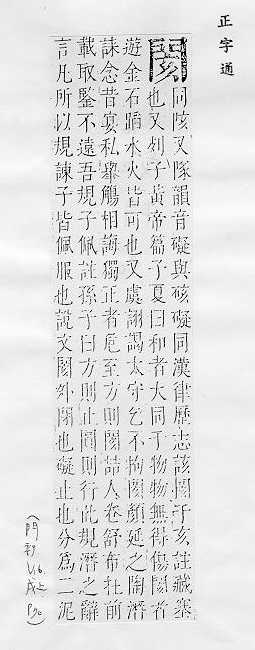 正字通
閡
同陔又隊韻音礙與硋礙同漢律歷志該閡于亥註藏塞
也又列子黃帝篇子夏曰和者大同于物物無得傷閡者
遊金石蹈水火皆可也又虞翻謁太守乞不拘閡顏延之陶潛
誄念昔宴私舉觴相誨獨正者危至方則閡喆人卷舒布在前
載取鑒不遠吾規子佩註孫子曰方則止圓則行此規潛之辭
言凡所以規諫子皆佩服也說文閡外閉也礙止也分爲二泥
(門部
戌上